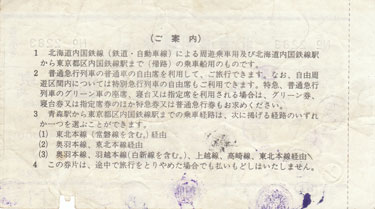 (ご案内)
1 北海道内国鉄線(鉄道・自動車線)による周遊乗車用及び北海道内国鉄線駅
から東京都区内国鉄線駅まで(帰路)の乗車船用のものです。
2 普通急行列車の普通車の自由席を利用して、ご旅行できます。なお、自由周
遊区間内については特別急行列車の自由席もご利用できます。特急、普通急
行列車のグリーン車の指席、寝台又は指定席を利用される場合は、グリーン券、
寝台券又は指定席券のほか特急券又は普通急行券もお求めください。
3 青森駅から東京都区内国鉄線駅までの乗車経路は、次に掲げる経路のいずれ
か一つを選ぶことができます。
(1) 東北本線(常磐線を含む。)経由
(2) 奥羽本線、東北本線経由
(3) 奥羽本線、羽越本線(白新線を含む。)、上越線、高崎線、東北本線経由
4 この券片は、途中で旅行をとりやめた場合でも払いもどしはいたしません。